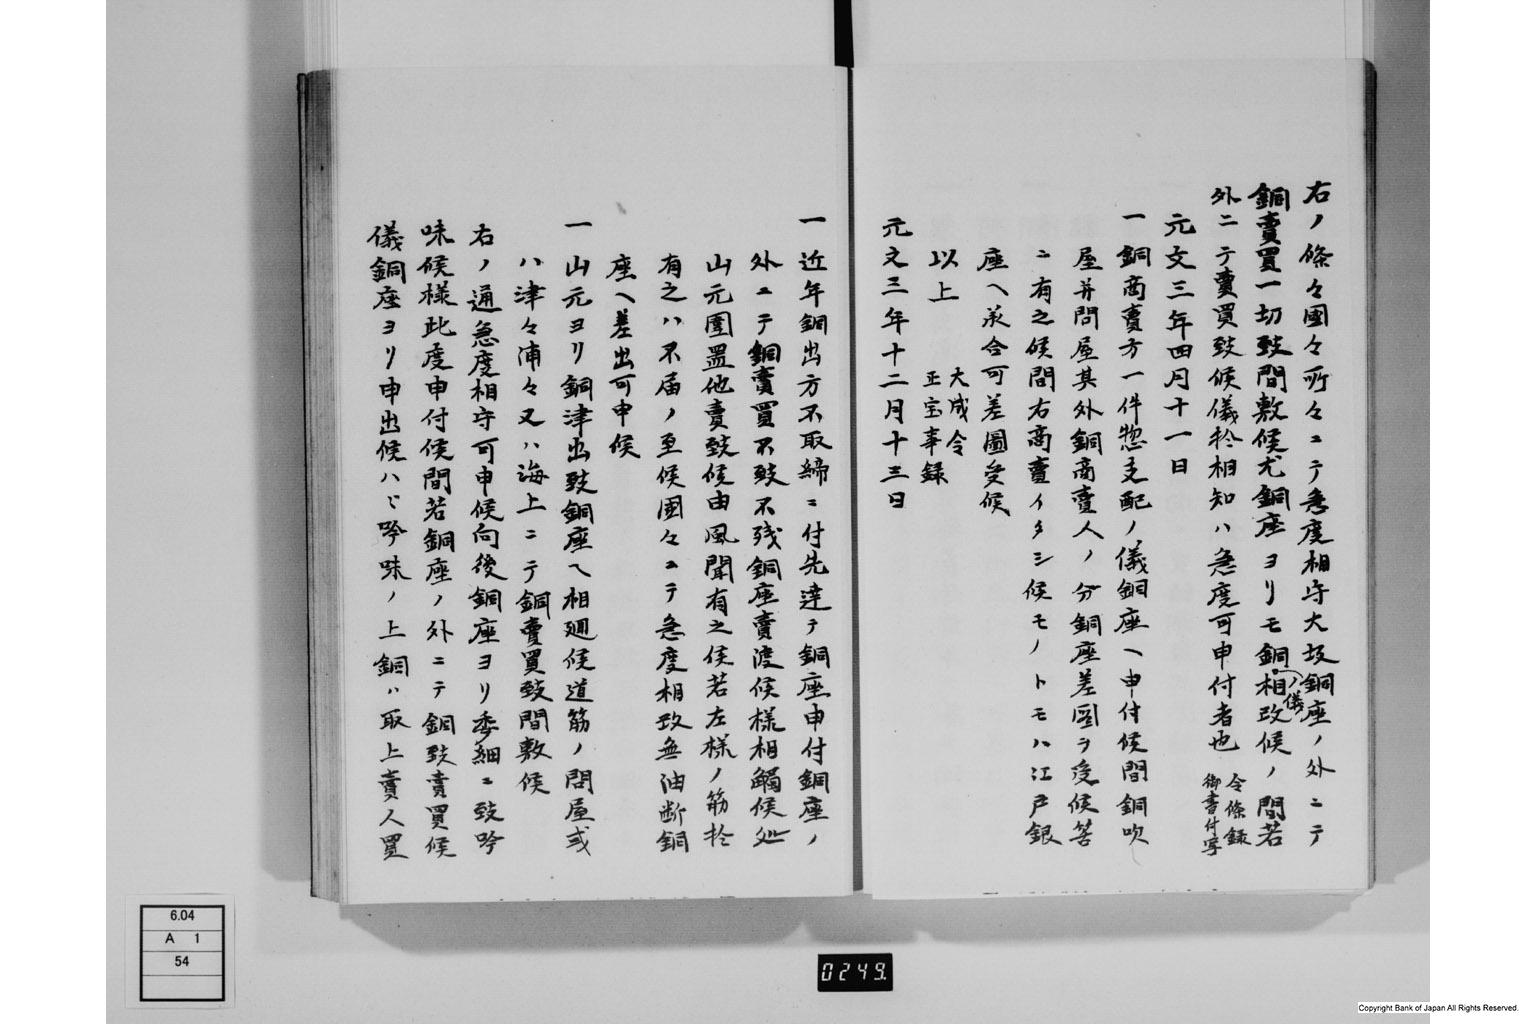 右ノ條々國々所々ニテ急度相守大坂銅座ノ外ニテ
銅賣買一切致間敷候尤銅座ヨリモ銅ノ儀相改候ノ間若
外ニテ賣買致候儀於相知ハ急度可申付者也
令條録
御書付写
元文三年四月十一日
一銅商賣方一件惣支配ノ儀銅座ヘ申付候間銅吹
屋并問屋其外銅商賣人ノ分銅座差圖ヲ受候筈
ニ有之候間右商賣イタシ候モノトモハ江戸銀
座ヘ承合可差圖受候
以上
大成令
正宝事録
元文三年十二月十三日
一近年銅出方不取締ニ付先達テ銅座申付銅座ノ
外ニテ銅賣買不致不残銅座賣渡候様相觸候処
山元圍置他賣致候由風聞有之候若左様ノ筋於
有之ハ不届ノ至候國々ニテ急度相改無油断銅
座ヘ差出可申候
一山元ヨリ銅津出致銅座ヘ相廻候道筋ノ問屋或
ハ津々浦々又ハ海上ニテ銅賣買致間敷候
右ノ通急度相守可申候向後銅座ヨリ委細ニ致吟
味候様此度申付候間若銅座ノ外ニテ銅致賣買候
儀銅座ヨリ申出候ハヽ吟味ノ上銅ハ取上賣人買
6.04
A 1
54
0249.
Copyright Bank of Japan All Rights Reserved.